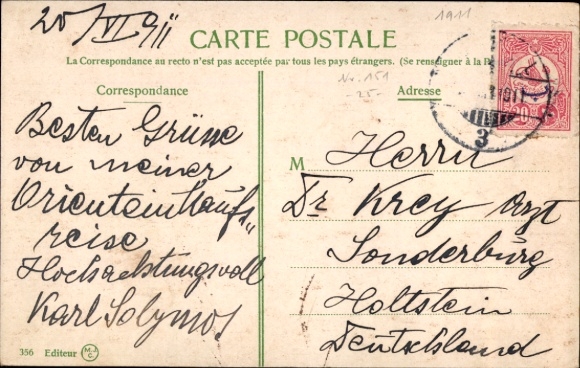 20/VI 911
1911
CARTE POSTALE
La Correspondance au recto n'est pas acceptée par tous les pays étrangers. (Se renseigner à la P
No. 151
25.-
Correspondance
Adresse
20
3
Besten Grüsse
von meiner
Orienteinkaufs„
reise
Hochachtungsvoll
Karl Solymos
M Herrn
Dr Krey Arzt
Sonderburg
Holtstein
Deutschland
356 Editeur M.J.C.